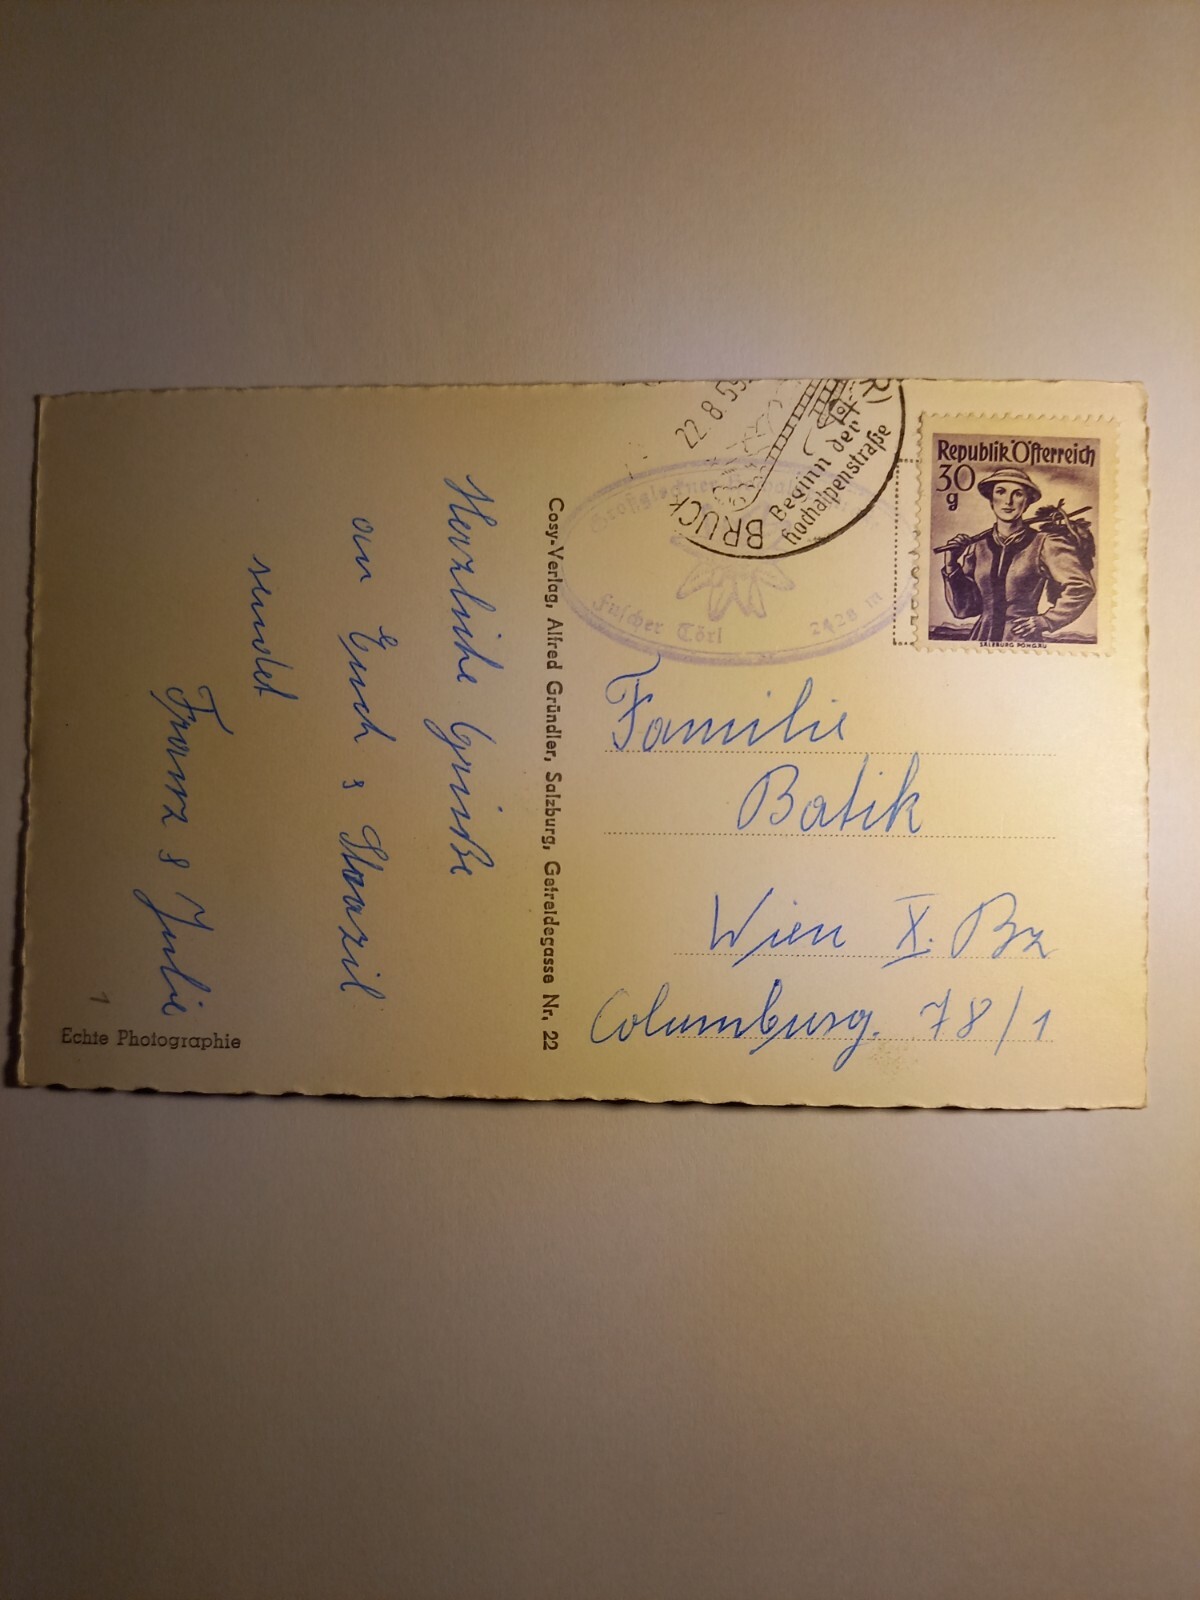 Herzliche Grüße
an Euch &
sendet
Franz & Julie
Echte Photographie
Cosy-Verlag, Alfred Gründler, Salzburg, Getreidegasse Nr. 22
22.8.59
BRUCK
Beginn der
Hochalpenstraße
Großglockner
Fuscher Törl 2428 m
Republik Österreich
30
g
SALZBURG PONGAU
Familie
Batik
Wien X. Bz
Columburg. 78/1
1